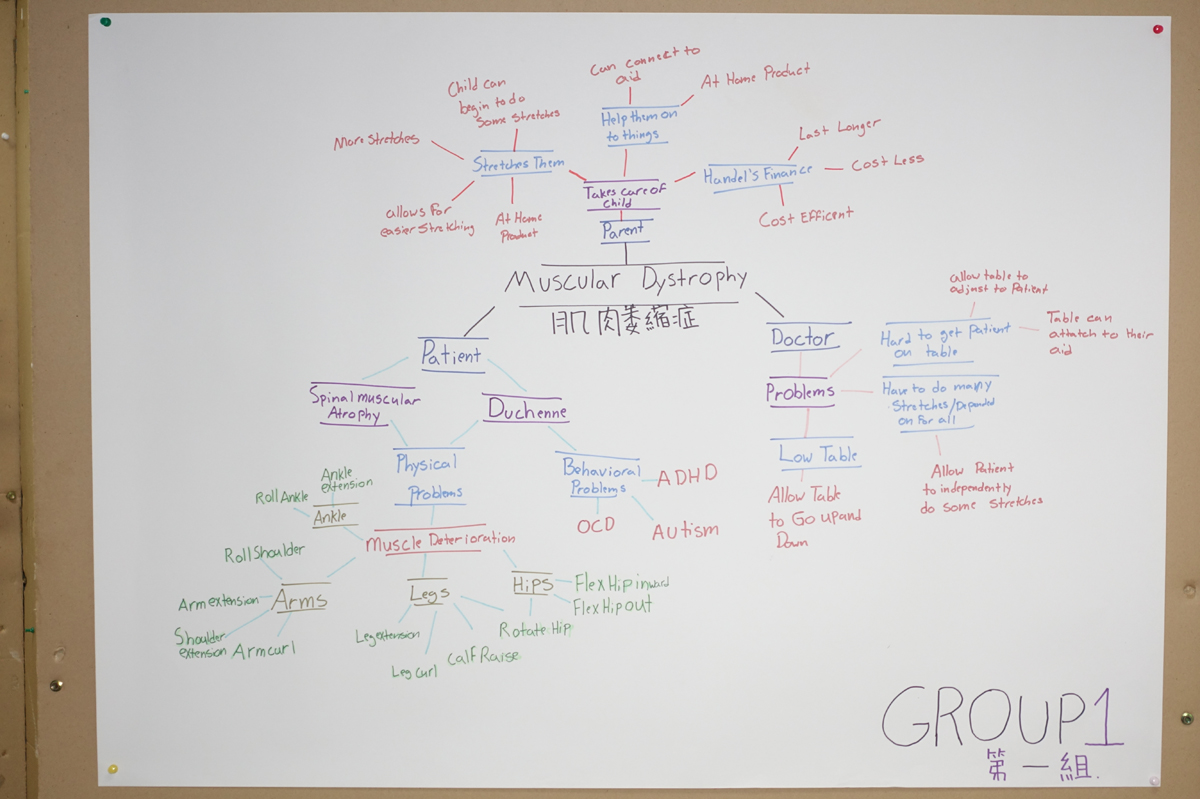 Can connect to
aid
At Home Product
Child can
begin to do
Some Stretches
Help them on
to things
Last Longer
More Stretches
Stretches Them
Handel's Finance
Cost Less
Takes care of
Child
allows For
easier Stretching
At Home
Product
Cost Efficent
Parent
Muscular Dystrophy
肌肉萎縮症
allow table to
adjust to Patient
Table can
attatch to their
aid
Doctor
Hard to get patient
on table
Patient
Problems
Have to do many
Stretches/Depended
on For all
Spinal muscular
Atrophy
Duchenne
Low Table
Physical
Problems
Behavioral
Problems
ADHD
OCD
Autism
Allow Table
to Go up and
Down
Allow Patient
to independently
do some Stretches
Ankle
extension
Roll Ankle
Ankle
Muscle Deterioration
Roll Shoulder
Arm extension
Arms
Shoulder
extension
Arm curl
Legs
Leg extension
Leg curl
Calf Raise
Hips
Flex Hip inward
Flex Hip out
Rotate Hip
GROUP 1
第一組.